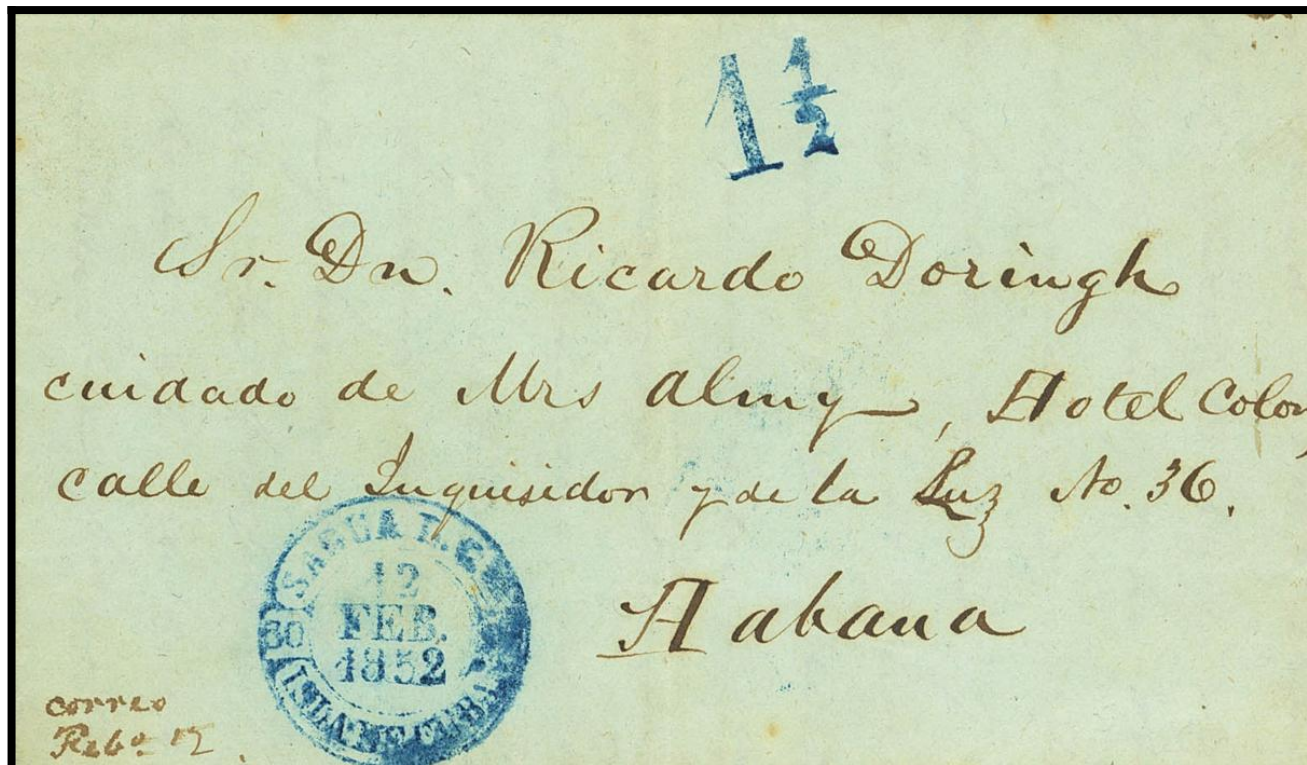 1 1/2
Sr. Dn. Ricardo Doringh
cuidado de Mrs Almy, Hotel Colon,
calle del Inquisidor y de la Luz No. 36.
Habana
SAGUA L. G.
12
FEB.
1852
ISLA DE CUBA
correo